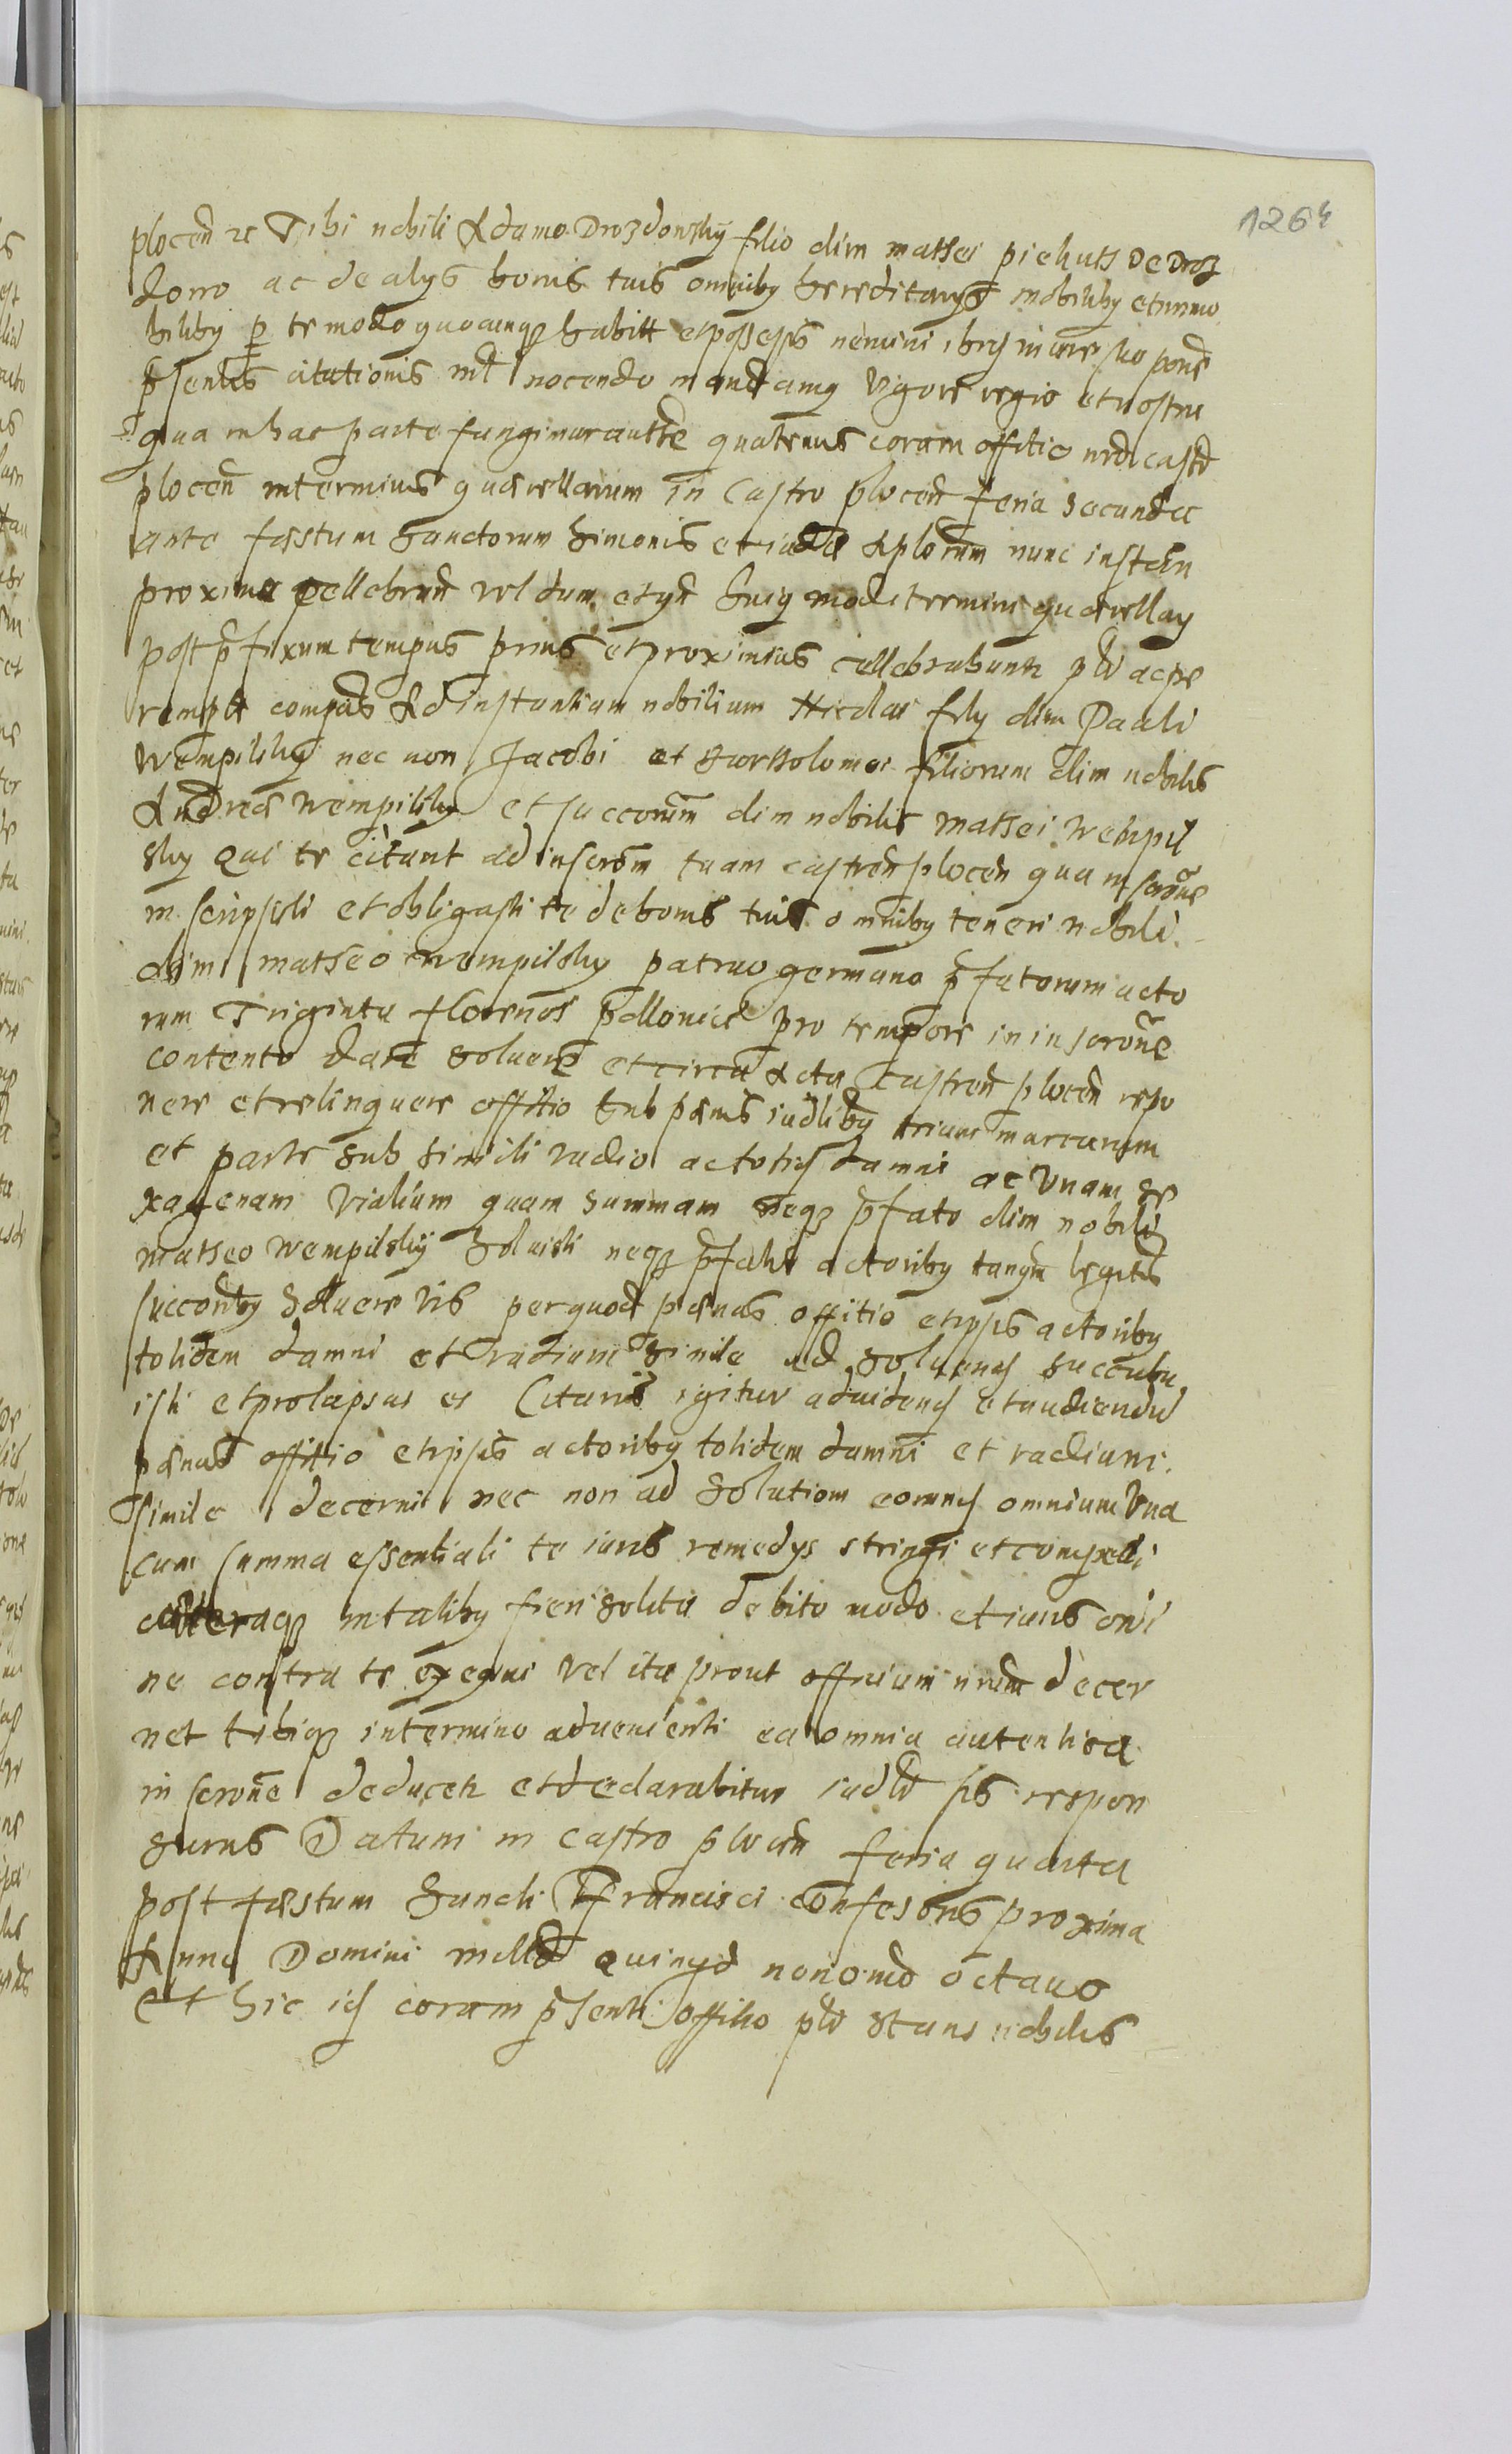 1264
plocen̄ etc Tibi nobili Adamo Drozdowsky filio olim mathei piehuth De Droz
dowo ac de alys bonis tuis omnibus hereditarys mobilibus et immo
bilibus per te modo quocunqz habitt et possessis nemini in iure suo
p̄sentis citationis nocendo mandamus vigore regio et nostra
qua in hac parte fungimur autthe quatenus coram offitio castr̄
plocen̄ in terminis quærellarum in Castro plocen̄ feria secunda
ante fæstum Sanctorum Simonis et iudæ Aplorum nunc instan̄
proxime cellebran̄ vel dum et ūn huius modi termini quærellarum
post p̄fixum tempus prius et proximius cellebrabuntr p̄lr ac pe
rempte compās Ad instantiam nobilium Nicolai fily olim Pauli
Wempilsky nec non Jacobi et Bartholomei filiorum olim nobilis
Andreæ Wempilsky et succorum olim nobilis Mathei Wempil
sky Qui te citant ad inscrōm tuam castren̄ plocen̄ qua inscrōne
inscripsisti et obligasti te de bonis tuis omnibus teneri nobili
olim matheo wempilsky patruo germano p̄fatorum acto
rum Triginta florenos pollonicæ pro tempore in inscrōne
contento dare soluere et circa Acta Castren̄ plocen̄ repo
nere et relinquere offitio sub pænis iudlibus trium marcarum
et parte sub simili vadio ac totius damni ac Vnam se
xagenam vialium quam summam neqz p̄fato olim nobili
matheo wempilsky soluisti neqz p̄fatis actoribus tanqm̄ legitis
succoribus soluere vis per quod pænas offitio et ipsis actoribus
totidem damni et vadium simile ad soluend succubu
isti et prolapsus es Citaris igitur ad vidend et audiendū
pænas offitio et ipsis actoribus totidem damni et vadium
simile decerni nec non ad solutiom eorund omnium Vna
cum summa essentiali te iuris remedys stringi et compelli
cæteraqz in talibus fieri solita debito modo et iuris ordi
ne contra te exequi vel ita prout officium nrūm decer
net tibiqz in termino aduenienti ea omnia autentica
inscrōne deducentr et declarabitur iudlr sis respon
surus Datum in castro plocen̄ feria quarta
post fæstum Sancti Francisci confessoris proxima
Anno Domini milld̄ quingd̄ nonogmo octauo
Et hic id coram p̄senti offitio p̄lr stans nobilis